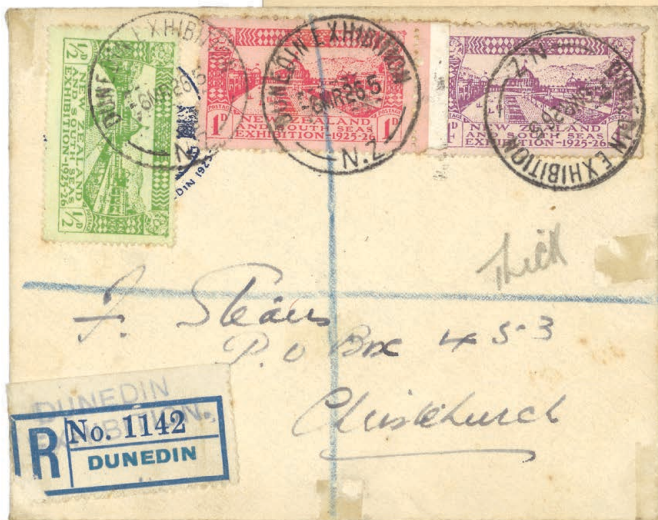 ½D ½D
NEW ZEALAND
AND SOUTH SEAS
EXHIBITION-1925-26
DUNEDIN EXHIBITION
6MR26
N.Z.
1D 1D
NEW ZEALAND
AND SOUTH SEAS
EXHIBITION-1925-26
DUNEDIN EXHIBITION
6MR26 5
N.Z.
NEW ZEALAND
AND SOUTH SEAS
EXHIBITION-1925-26
DUNEDIN EXHIBITION
N.Z.
Thick
P.O Box 453
Christchurch
DUNEDIN
EXHIBITION.
R No. 1142
DUNEDIN